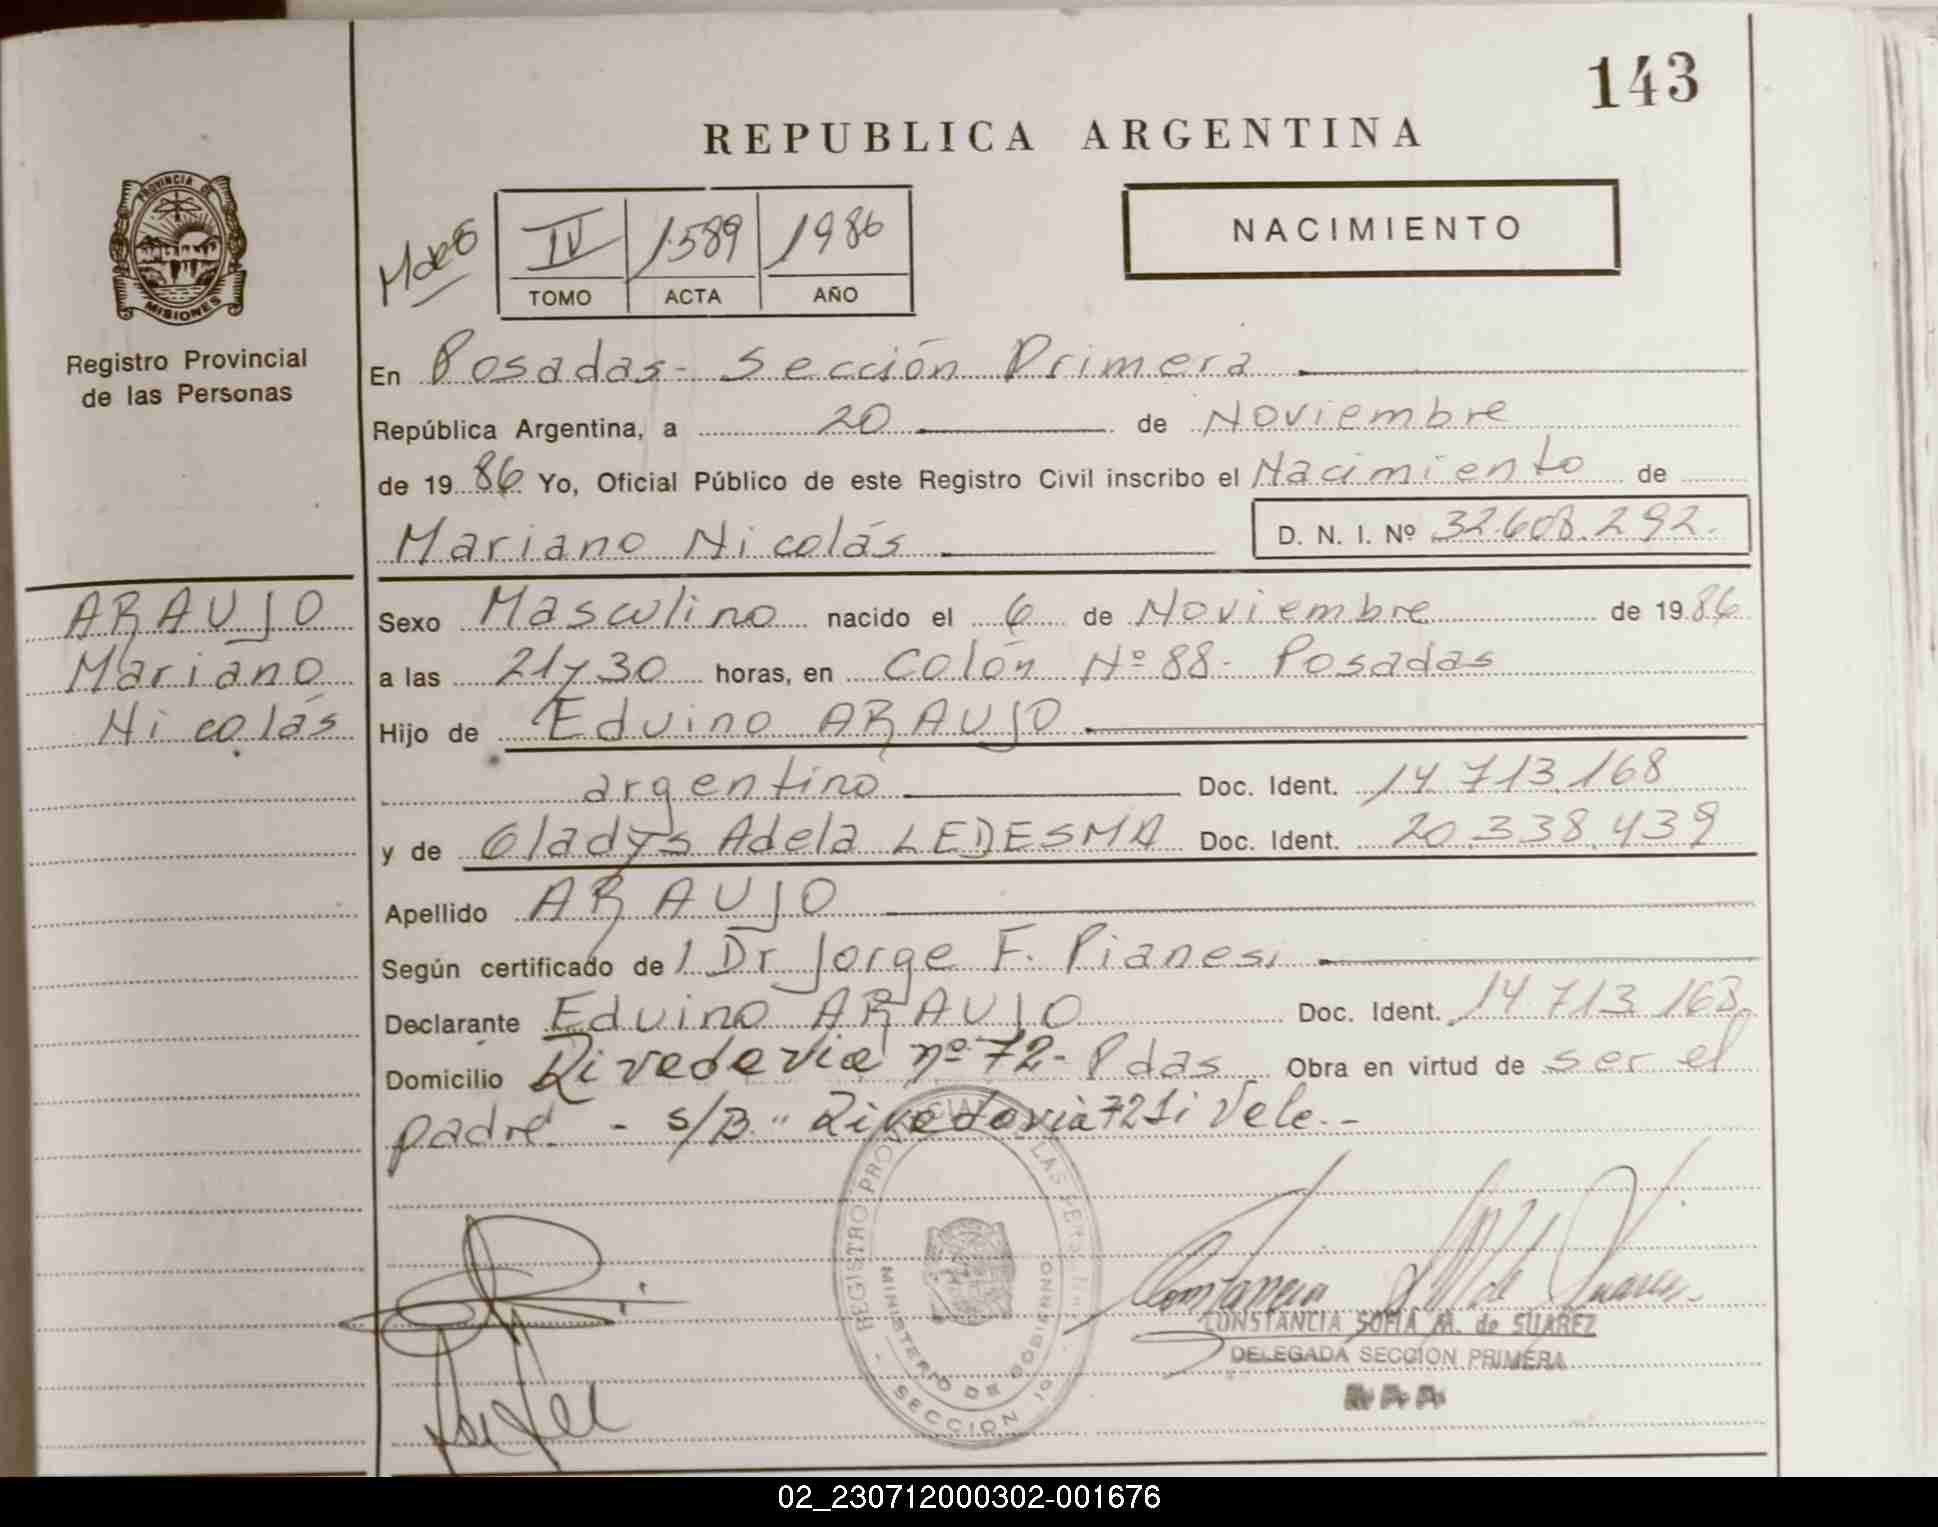 143
REPUBLICA ARGENTINA
PROVINCIA DE MISIONES
Registro Provincial
de las Personas
IV 1.589 1986
TOMO ACTA AÑO
NACIMIENTO
En Posadas - Sección Primera
República Argentina, a 20 de Noviembre
de 1986 Yo, Oficial Público de este Registro Civil inscribo el Nacimiento de
Mariano Nicolás D. N. I. Nº 32.608.292.
ARAUJO
Mariano
Nicolás
Sexo Masculino nacido el 6 de Noviembre de 1986
a las 21 y 30 horas, en Colón Nº 88 - Posadas
Hijo de Eduino ARAUJO
argentino Doc. Ident. 14.713.168
y de Gladys Adela LEDESMA Doc. Ident. 20.338.439
Apellido ARAUJO
Según certificado de l Dr Jorge F. Pianesi
Declarante Eduino ARAUJO Doc. Ident. 14.713.168
Domicilio Rivadavia nº 72 - Pdas Obra en virtud de ser el
padre - s/B " Rivadavia 72 Si Vale.-
REGISTRO PROVINCIAL DE LAS PERSONAS
MINISTERIO DE GOBIERNO
- SECCION 1º -
CONSTANCIA SOFIA M. de SUAREZ
DELEGADA SECCION PRIMERA
02_230712000302-001676